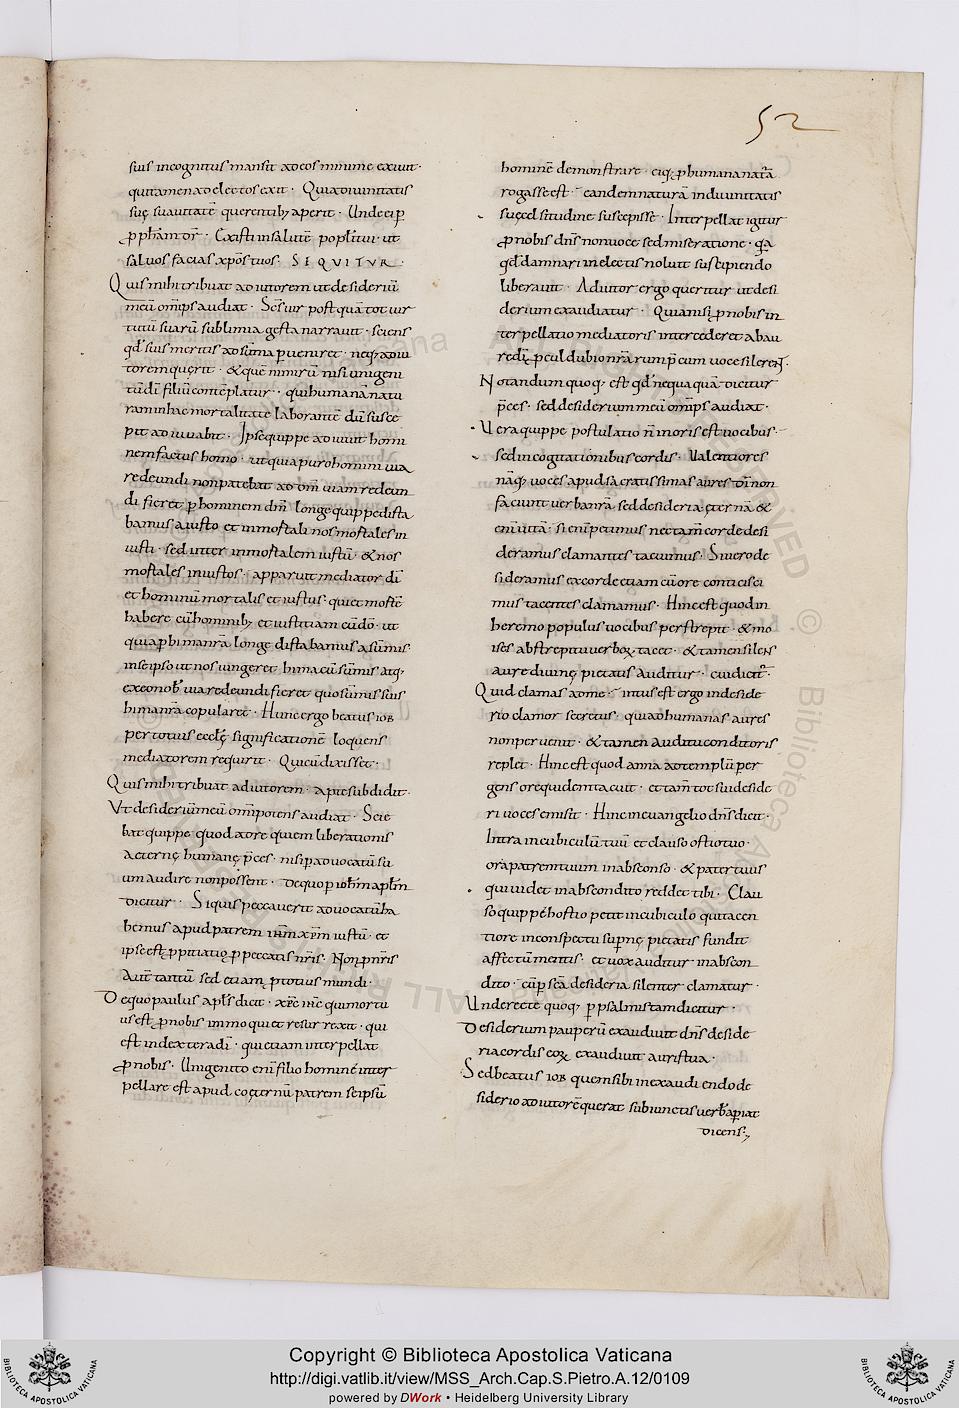 52
suis incognitus mansit ad eos minime exivit·
qui tamen ad electos exit· Quia divinitatis
suę suavitatē querentibꝫ aperit· Unde ei ꝑ
ꝓphētam dr̄· Existi in salutē popli tui· ut
salvos facias xpōs tuos· SEQUITUR·
Quis mihi tribuat adiutorem ut desideriū
meū omp̄s audiat· postquā tot vir
tutū suarū sublimia gesta narravit· sciens
qd̄ suis meritis ad sūma pveniret· neqꝫ adiu
torem quęrit· & quē nimirū nisi unigeni
tū dī filiū contēplatur· qui humanā natu
ram in hac mortalitate laborantē dū susce
pit adiuvabit· Ipse quippe adiuvit homi
nem factus homo· ut quia puro homini via
redeundi non patebat ad dm̄ viam redeun
di fieret ꝑ hominem dm̄· Longe quippe dista
bamus a iusto et inmortali nos mortales in
iusti· sed inter inmortalem iustū· & nos
mortales iniustos· apparuit mediator dī
et hominū mortalis et iustus· qui et mortē
haberet cū hominibꝫ et iustitiam cū dō· ut
quia ꝑ hima nr̄a longe distabamus a sūmis
in se ipso ut nos iungeret hima cū sūmis atqꝫ
ex eo nob̄ via redeundi fieret quo sūmis suis
hima nr̄a copularet· Hunc ergo beatus iob
per totius ecclę significationē loquens
mediatorem requirit· Qui cū dixisset·
Quis mihi tribuat adiutorem· apte subdidit·
Ut desideriū meū omipotens audiat· Scie
bat quippe quod ad requiem liberationis
aeternę humanę pces· nisi ꝑ advocatū su
um audire non possent· De quo ꝑ iohm̄ aplm̄
dicitur· Si quis peccaverit advocatū ha
bemus apud patrem ihm̄ xpm̄ iustū· et
ipse est ꝓpitiatio ꝓ peccatis nr̄is· Non ꝓ nr̄is
autē tantū sed etiam ꝓ totius mundi·
De quo paulus apls̄ dicit· qui mortu
us est ꝓ nobis immo qui et resurrexit· qui
est in dextera dī· qui etiam interpellat
ꝓ nobis· Unigenito enī filio hominē inter
pellare est apud coęternū patrem se ipsū
hominē demonstrare· eiqꝫ ꝓ humana natā
rogasse est eandem naturā in divinitatis
suę celsitudine suscepisse· Interpellat igitur
ꝓ nobis dn̄s non voce sed miseratione· qa
qd̄ damnari in electis noluit suscipiendo
liberavit· Adiutor ergo queritur ut desi
derium exaudiatur· Quia nisi ꝓ nobis in
terpellatio mediatoris intercederet ab au
re dī ꝓcul dubio nr̄arum pcum voces silerent·
Notandum quoqꝫ est qd̄ nequaquā dicitur
p̄ces· sed desiderium meū omp̄s audiat·
Vera quippe postulatio n̄ in oris est vocibus·
sed in cogitationibus cordis· Valentiores
nāqꝫ voces apud sacratissimas aures dī non
faciunt verba nr̄a sed desideria· ęternā &
enī vitā· si enī petimus nec tam̄ corde desi
deramus clamantes tacemus· Si vero de
sideramus ex corde etiam cū ore conticisci
mus tacentes clamamus· Hinc est quod in
heremo populus vocibus perstrepit· & mo
ises a strepitu verboꝝ tacet· & tamen silens
aure divinę pietatis auditur· cui dicitr̄·
Quid clamas ad me· intus est ergo in deside
rio clamor secretus· qui ad humanas aures
non pervenit· & tamen auditū conditoris
replet· Hinc est quod anna ad templū per
gens ore quidem tacuit· et tam̄ tot sui deside
rii voces emisit· Hinc in evangelio dn̄s dicit·
Intra in cubiculū tuū et clauso ostio tuo·
ora patrem tuum in absconso· & pater tuus
qui videt in abscondito reddet tibi· Clau
so quippe hostio petit in cubiculo qui tacen
te ore in conspectu supnę pietatis fundit
affectū mentis· et vox auditur in abscon
dito· cū ꝑ scā desideria silenter clamatur·
Unde recte quoqꝫ ꝑ psalmistam dicitur·
Desiderium pauperū exaudivit dn̄s deside
ria cordis eoꝝ exaudivit auris tua·
Sed beatus iob quem sibi in exaudiendo de
siderio adiutorē querat subiunctis verb̄ apiat
dicens·
Copyright © Biblioteca Apostolica Vaticana
http://digi.vatlib.it/view/MSS_Arch.Cap.S.Pietro.A.12/0109
powered by DWork • Heidelberg University Library